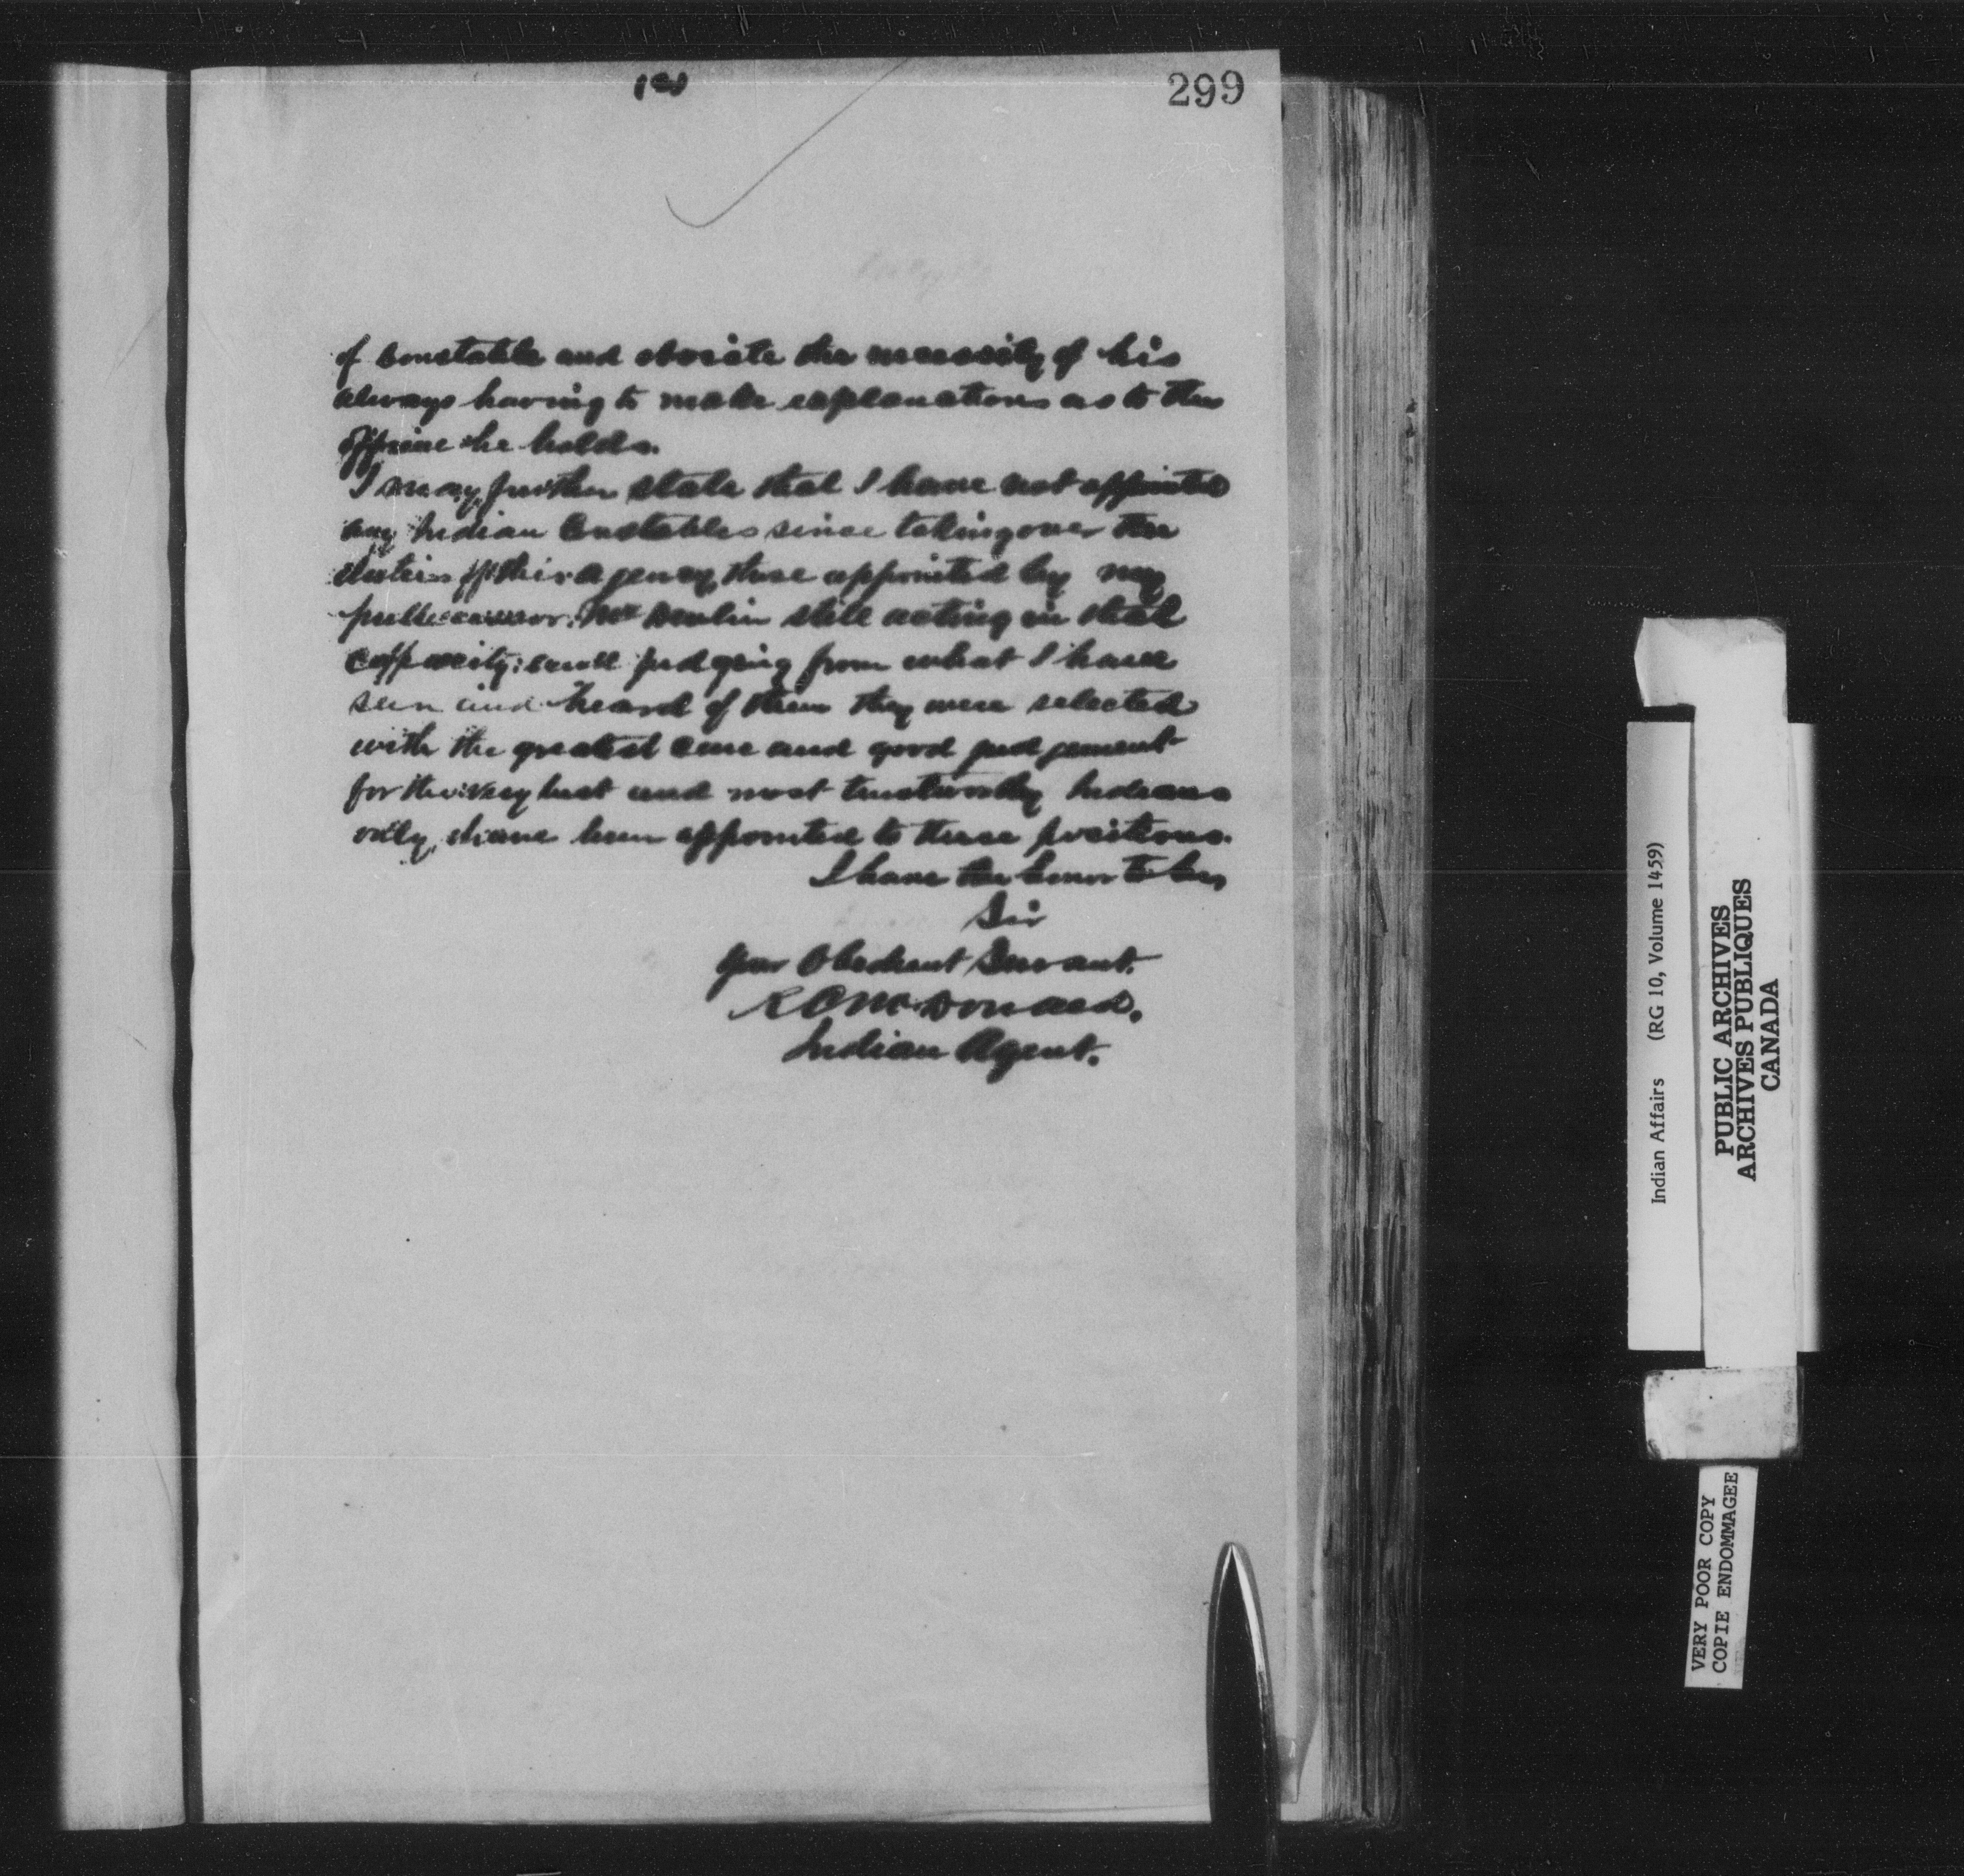 299
of Constable and obviate the necessity of his
always having to make explanations as to the
office he holds.
I may further state that I have not appointed
any Indian Constables since taking over the
duties of this agency, those appointed by my
predecessor, Mr Devlin still acting in that
capacity; and judging from what I have
seen and heard of them they were selected
with the greatest care and good judgement
for the very best and most trustworthy Indians
only, have been appointed to these positions.
I have the honor to be,
Sir
Your Obedient Servant.
McDonald.
Indian Agent.
Indian Affairs (RG 10, Volume 1459)
PUBLIC ARCHIVES
ARCHIVES PUBLIQUES
CANADA
VERY POOR COPY
COPIE ENDOMMAGEE